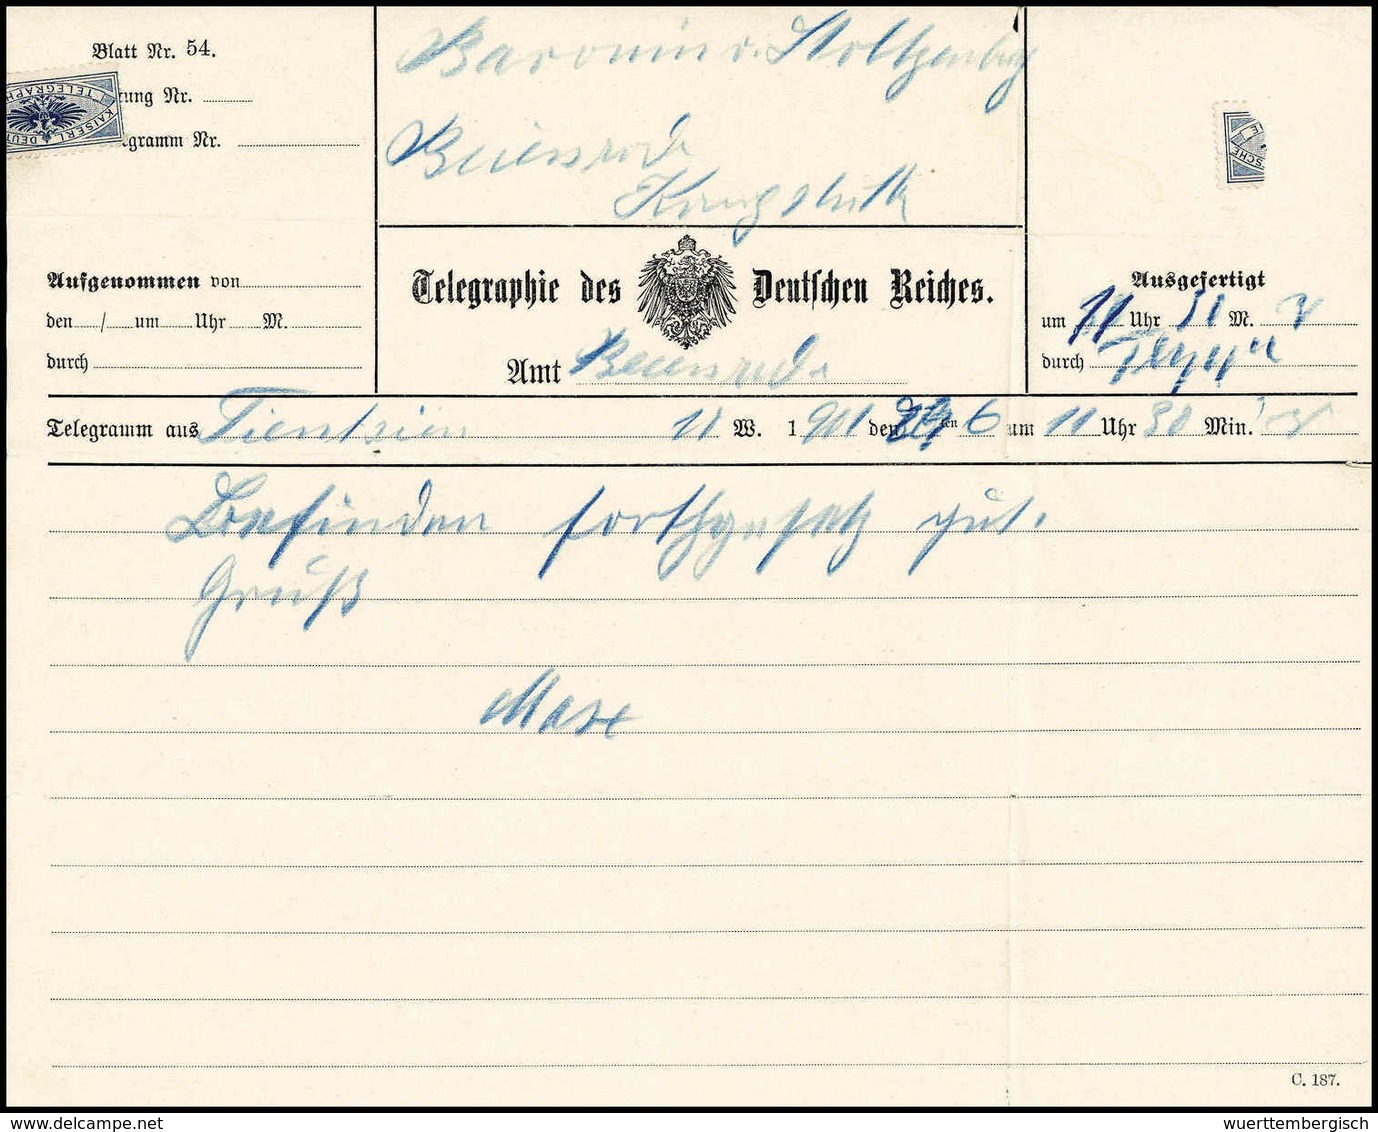 Blatt Nr. 54.
ung Nr.
gramm Nr.
KAISERL. DEUT
TELEGRAPH
Baronin v. Stoltzenberg
Beienrode
Königslutt
SCHE
TE
Aufgenommen von
den / um Uhr M.
durch
Telegraphie des Deutschen Reiches.
Amt Beienrode
Ausgefertigt
um 11 Uhr 51 M.
durch
Telegramm aus Tientsien 11 W. 1901 den 29 ten 6 um 11 Uhr 30 Min.
Befinden fortgesetz gut.
Gruß
Max
C. 187.
wuerttembergisch